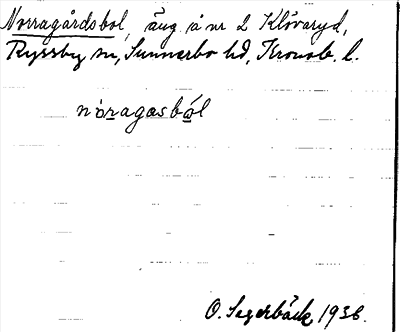 Norragårdsbol, äng å nr 2 Klövaryd,
Ryssby sn, Sunnerbo hd, Kronob. l.
nòragasból
O. Segerbäck 1936.